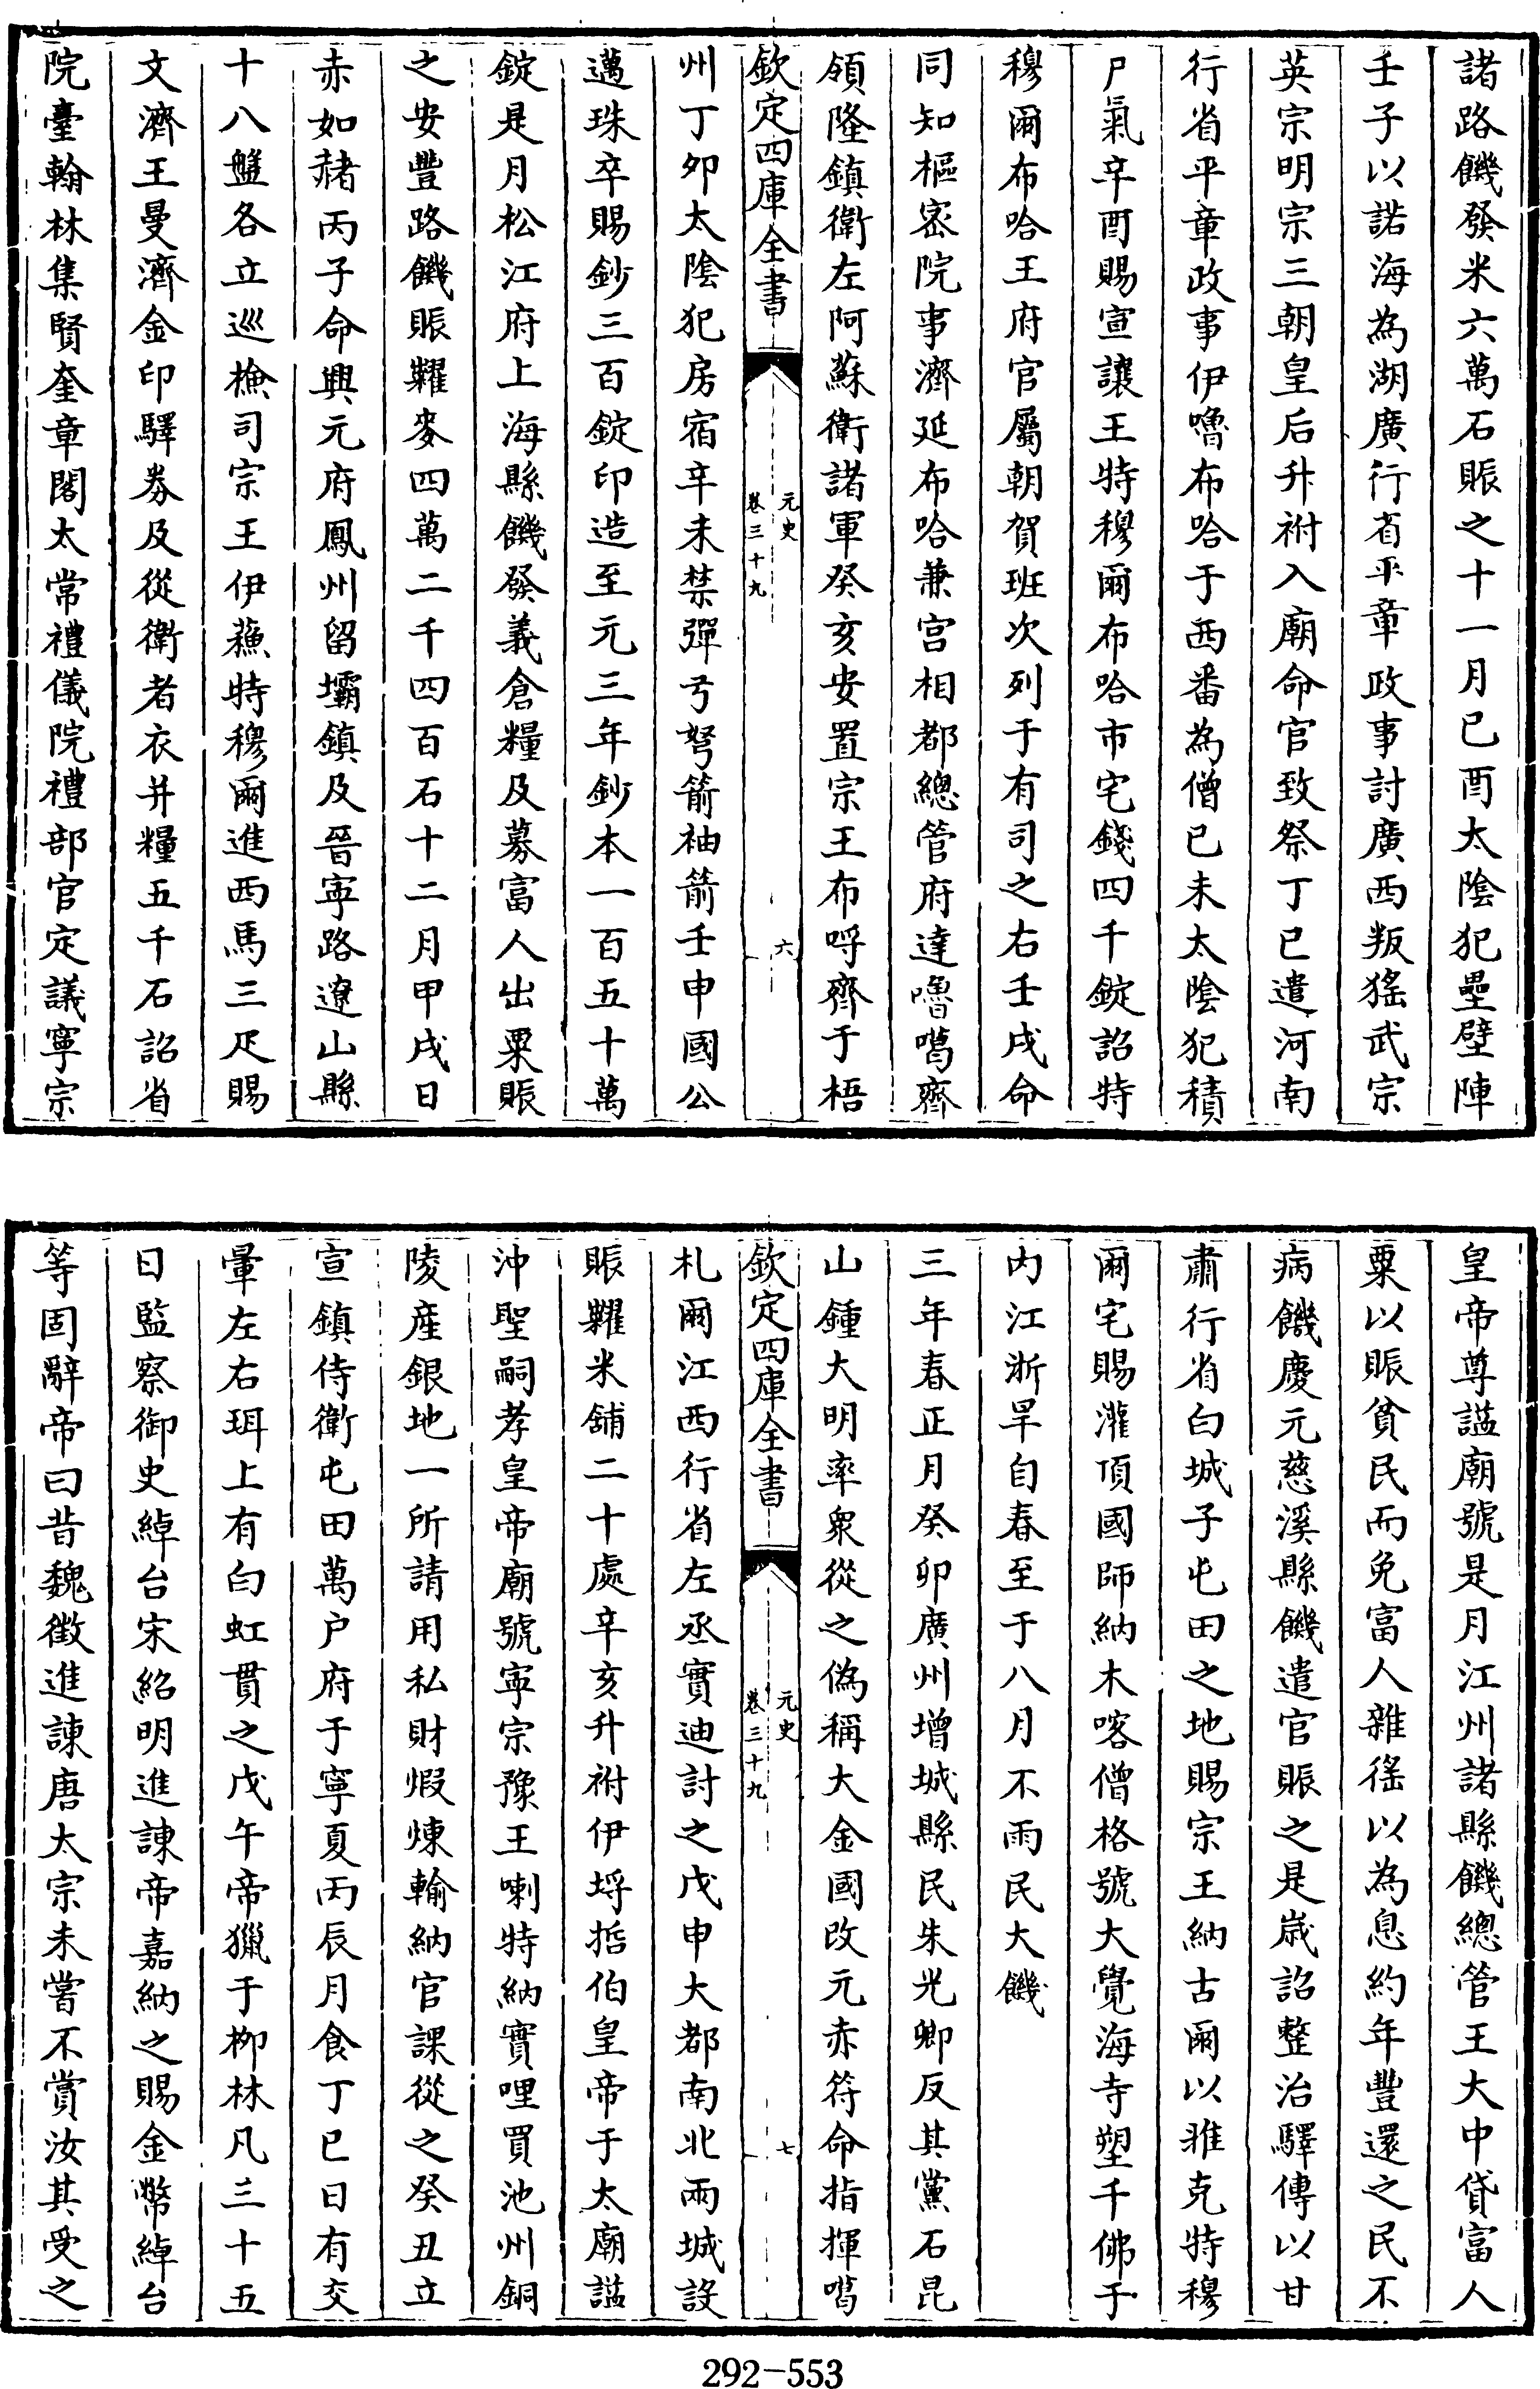 諸路饑發米六萬石賑之十一月已酉太陰犯壘壁陣
壬子以諾海為湖廣行省平章政事討廣西叛猺武宗
英宗明宗三朝皇后升祔入廟命官致祭丁巳遣河南
行省平章政事伊嚕布哈于西番為僧已未太陰犯積
尸氣辛酉賜宣讓王特穆爾布哈市宅錢四千錠詔特
穆爾布哈王府官屬朝賀班次列于有司之右壬戌命
同知樞密院事濟延布哈兼宫相都總管府達嚕噶齊
領隆鎮衛左阿蘇衛諸軍癸亥安置宗王布哷齊于梧
欽定四庫全書
元史
卷三十九
六
州丁夘太陰犯房宿辛未禁彈弓弩箭袖箭壬申國公
邁珠卒賜鈔三百錠印造至元三年鈔本一百五十萬
錠是月松江府上海縣饑發義倉糧及募富人出粟賑
之安豐路饑賑糶麥四萬二千四百石十二月甲戌日
赤如赭丙子命興元府鳳州留壩鎮及晉寜路遼山縣
十八盤各立巡檢司宗王伊蘓特穆爾進西馬三疋賜
文濟王曼濟金印驛券及從衛者衣并糧五千石詔省
院臺翰林集賢奎章閣太常禮儀院禮部官定議寧宗
皇帝尊諡廟號是月江州諸縣饑總管王大中貸富人
粟以賑貧民而免富人雜徭以為息約年豐還之民不
病饑慶元慈溪縣饑遣官賑之是歲詔整治驛傳以甘
肅行省白城子屯田之地賜宗王納古爾以雅克特穆
爾宅賜灌頂國師納木喀僧格號大覺海寺塑千佛于
内江浙旱自春至于八月不雨民大饑
三年春正月癸卯廣州增城縣民朱光卿反其黨石昆
山鍾大明率衆從之偽稱大金國改元赤符命指揮噶
欽定四庫全書
元史
卷三十九
七
札爾江西行省左丞實迪討之戊申大都南北兩城設
賑糶米舖二十處辛亥升祔伊埒哲伯皇帝于太廟諡
沖聖嗣孝皇帝廟號寜宗豫王喇特納實哩買池州銅
陵産銀地一所請用私財煅煉輸納官課從之癸丑立
宣鎮侍衛屯田萬户府于寧夏丙辰月食丁巳日有交
暈左右珥上有白虹貫之戊午帝獵于柳林凡三十五
日監察御史綽台宋紹明進諫帝嘉納之賜金幣綽台
等固辭帝曰昔魏徵進諫唐太宗未嘗不賞汝其受之
292-553